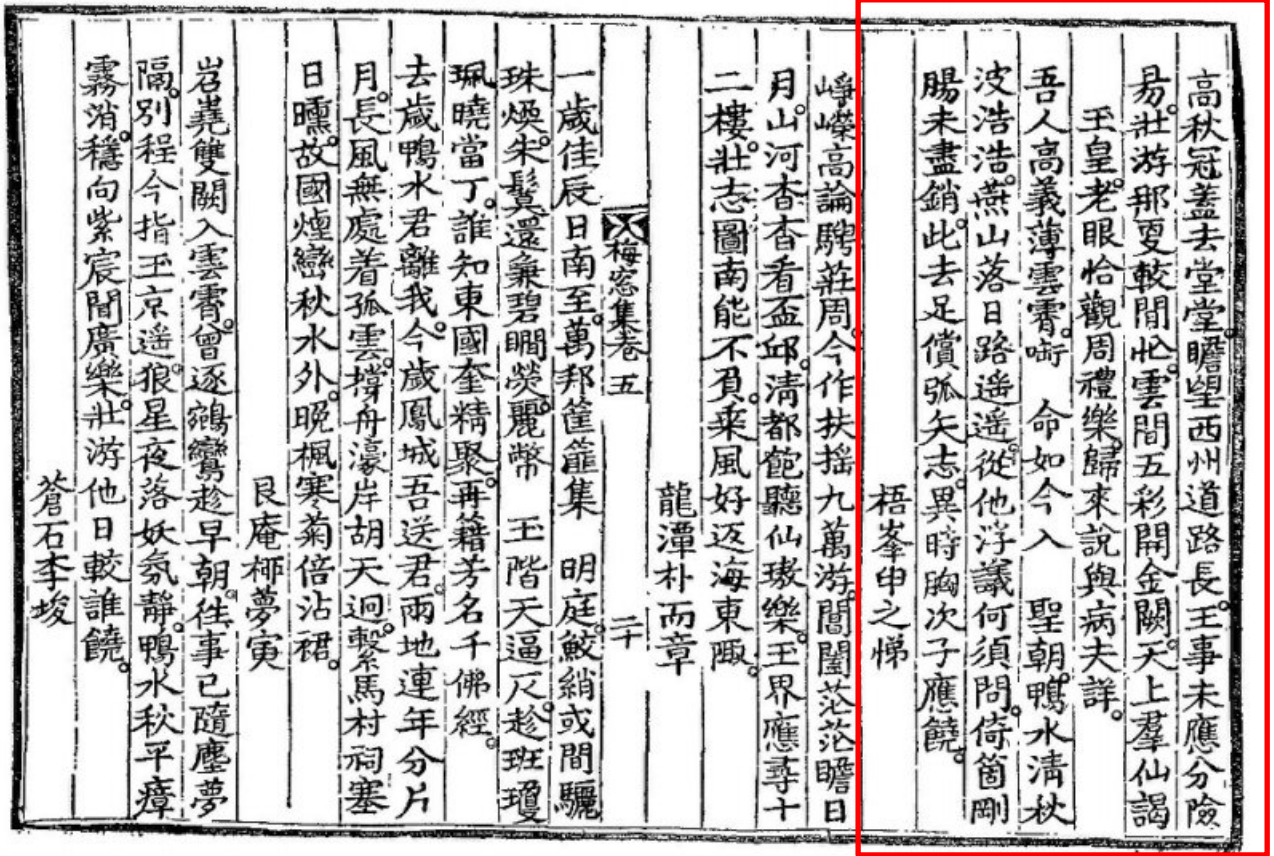 高秋冠蓋去堂堂。瞻望西州道路長。王事未應分險
易。壯游那更較閒忙。雲間五彩開金闕。天上羣仙謁
玉皇。老眼恰觀周禮樂。歸來說與病夫詳。
吾人高義薄雲霄。啣 命如今入 聖朝。鴨水淸秋
波浩浩。燕山落日路遥遥。從他浮議何須問。倚箇剛
腸未盡銷。此去足償弧矢志。異時胸次子應饒。
梧峯申之悌
崢嶸高論騁莊周。今作扶搖九萬游。閶闔茫茫瞻日
月。山河杳杳看盃邱。淸都飽聽仙璈樂。玉界應尋十
二樓。壯志圖南能不負。乘風好返海東陬。
龍潭朴而章
梅窓集卷五 二十
一歲佳辰日南至。萬邦筐篚集 明庭。鮫綃或間驪
珠煥。朱鬉還兼碧瞯熒。麗幣 玉階天逼尺。趁班瓊
珮曉當丁。誰知東國奎精聚。再籍芳名千佛經。
去歲鴨水君離我。今歲鳳城吾送君。兩地連年分片
月。長風無處着孤雲。撐舟濠岸胡天逈。繫馬村祠塞
日曛。故國煙巒秋水外。晚楓寒菊倍沾裙。
艮庵柳夢寅
岧嶤雙闕入雲霄。曾逐鵷鸞趁早朝。往事已隨塵夢
隔。別程今指玉京遥。狼星夜落妖氛靜。鴨水秋平瘴
霧消。穩向紫宸聞廣樂。壯游他日較誰饒。
蒼石李埈